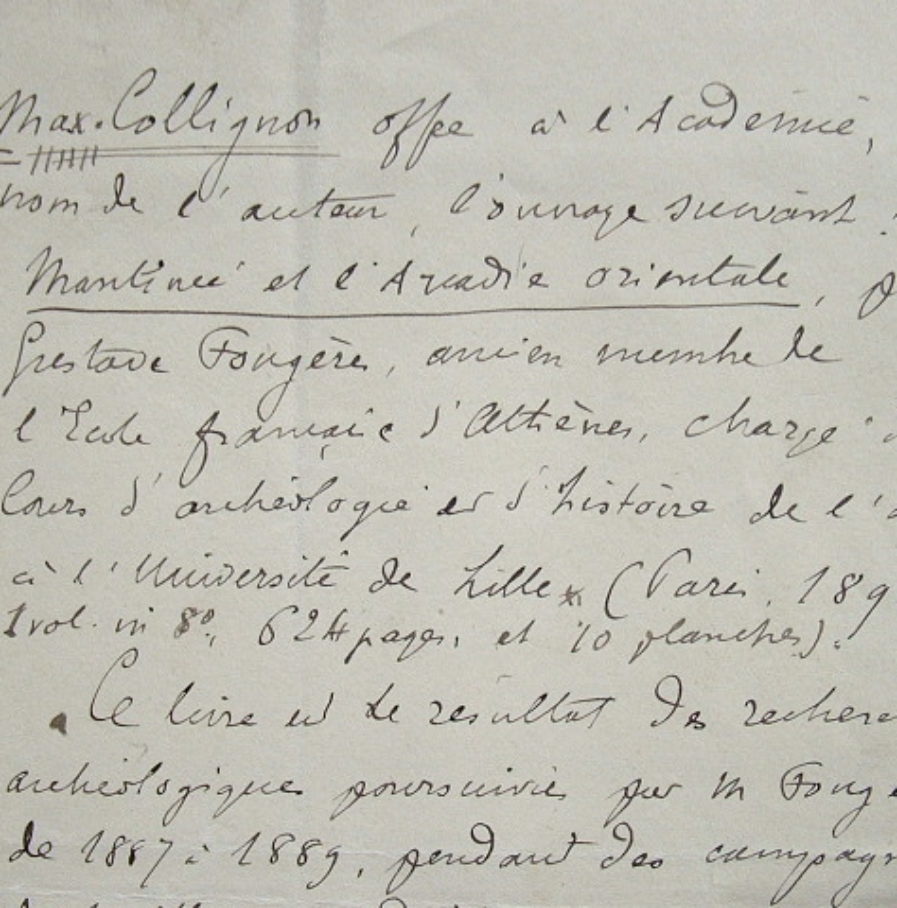 Max. Collignon offre à l'Académie,
nom de l'auteur, l'ouvrage suivant :
Mantinée et l'Arcadie orientale,
Gustave Fougères, ancien membre de
l'Ecole française d'Athènes, chargé
Cours d'archéologie et d'histoire de l'
à l'Université de Lille (Paris, 189
1 vol. in 8°, 624 pages, et 10 planches).
Ce livre est le résultat des recherc
archéologiques poursuivies par M Foug
de 1887 à 1889, pendant des campagn